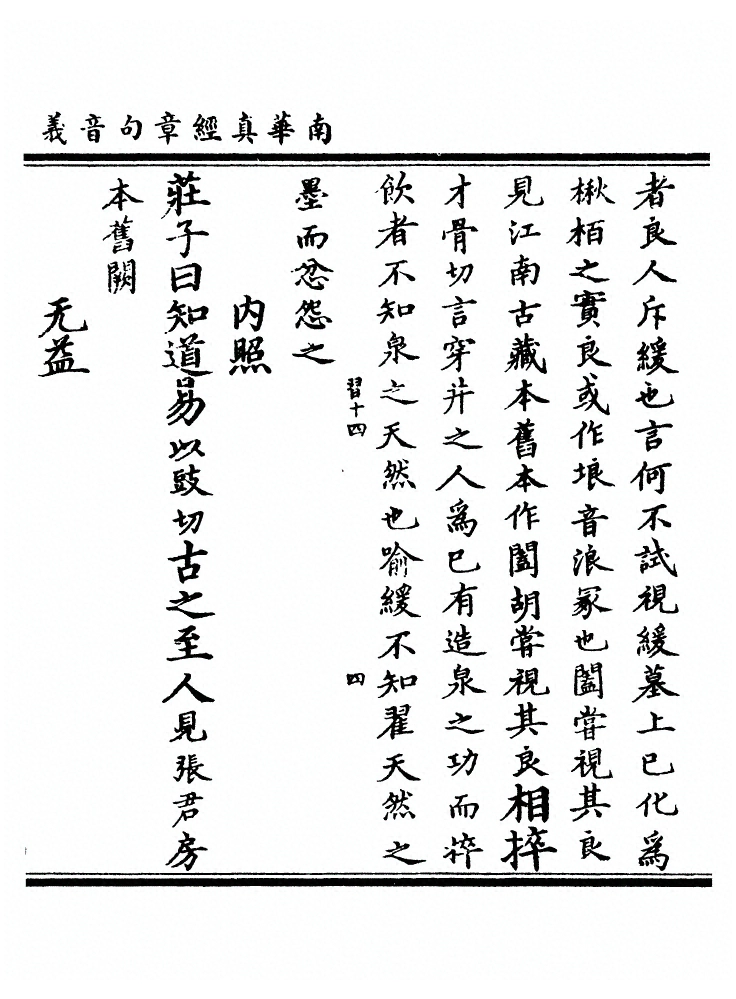 南華真經章句音義
者良人斥緩也言何不試視緩墓上已化爲
楸栢之實良或作埌音浪冡也闔甞視其良
見江南古藏本舊本作闔胡甞視其良相捽
才骨切言穿井之人爲已有造泉之功而捽
飲者不知泉之天然也喻緩不知翟天然之
習十四
四
墨而忿怨之
内照
莊子曰知道易以豉切古之至人見張君房
本舊闕
无益